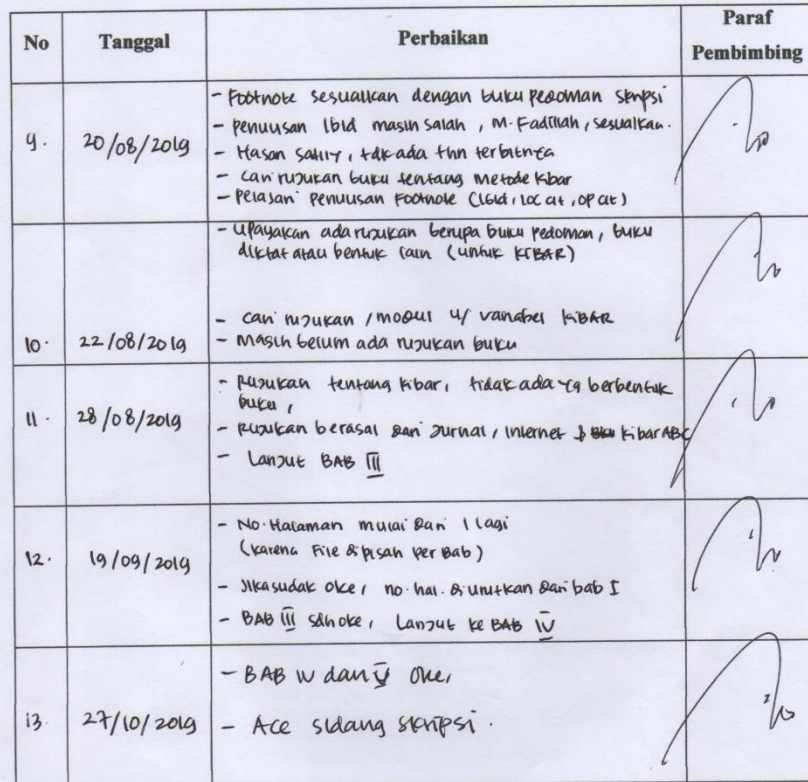 No Tanggal Perbaikan Paraf Pembimbing
9. 20/08/2019
- Footnote sesuaikan dengan buku pedoman skripsi
- penulisan Ibid masih salah, M. Fadlillah, sesuaikan.
- Hasan Sadily, tdk ada thn terbitnya
- cari rujukan buku tentang metode Kibar
- Pelajari penulisan Footnote (Ibid, loc cit, op cit)
10. 22/08/2019
- Upayakan ada rujukan berupa buku pedoman, buku
diktat atau bentuk lain (untuk KIBAR)
- cari rujukan / modul u/ variabel KIBAR
- Masih belum ada rujukan buku
11. 28/08/2019
- Rujukan tentang kibar, tidak ada yg berbentuk
buku,
- Rujukan berasal dari Jurnal, Internet & Kibar ABC
- Lanjut BAB III
12. 19/09/2019
- No. Halaman mulai dari 1 lagi
(karena File dipisah per Bab)
- Jika sudah oke, no. hal. diurutkan dari bab I
- BAB III sdh oke, Lanjut ke BAB IV
13. 27/10/2019
- BAB IV dan V oke,
- Acc sidang skripsi.